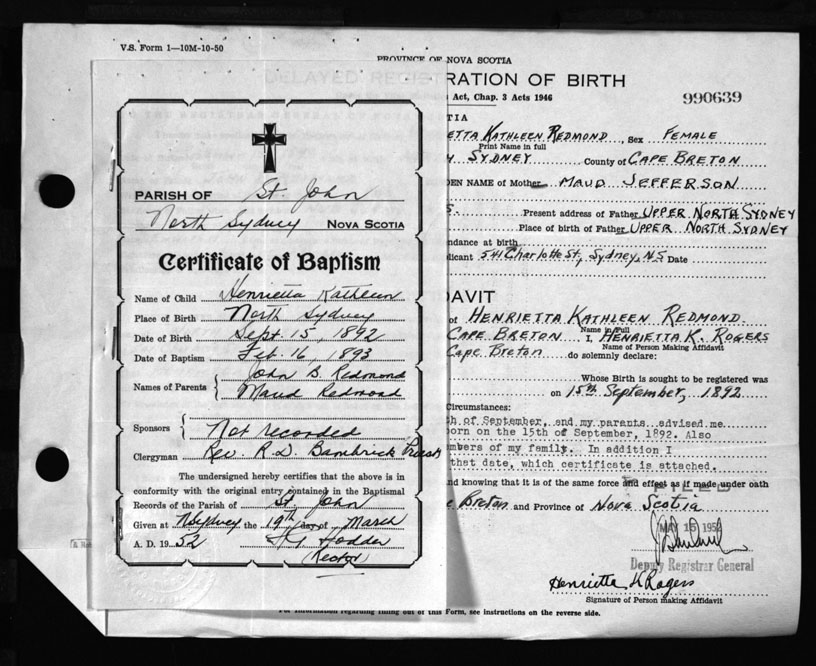 V.S. Form 1—10M-10-50
PARISH OF St. John
North Sydney NOVA SCOTIA
Certificate of Baptism
Name of Child Henrietta Kathleen
Place of Birth North Sydney
Date of Birth Sept. 15, 1892
Date of Baptism Feb. 16, 1893
Names of Parents John B. Redmond
Maud Redmond
Sponsors Not recorded
Clergyman Rev. R.D. Bambrick Priest
The undersigned hereby certifies that the above is in
conformity with the original entry contained in the Baptismal
Records of the Parish of St. John
Given at N. Sydney the 19th day of March
A. D. 1952
Hodder
(Rector)
PROVINCE OF NOVA SCOTIA
DELAYED REGISTRATION OF BIRTH
Act, Chap. 3 Acts 1946
990639
TIA
ETTA KATHLEEN REDMOND, Sex FEMALE
Print Name in full
SYDNEY County of CAPE BRETON
DEN NAME of Mother MAUD JEFFERSON
S. Present address of Father UPPER NORTH SYDNEY
Place of birth of Father UPPER NORTH SYDNEY
endance at birth
licant 541 Charlotte St, Sydney, N.S Date
DAVIT
of HENRIETTA KATHLEEN REDMOND
Name in Full
CAPE BRETON I, HENRIETTA K. ROGERS
Name of Person Making Affidavit
Cape Breton do solemnly declare:
Whose Birth is sought to be registered was
on 15th September, 1892
Circumstances:
th of September, and my parents advised me
orn on the 15th of September, 1892. Also
mbers of my family. In addition I
that date, which certificate is attached.
nd knowing that it is of the same force and effect as if made under oath
FILED
e Breton and Province of Nova Scotia
MAY 15 195
Deputy Registrar General
Henrietta K Rogers
Signature of Person making Affidavit
For information regarding filling out of this Form, see instructions on the reverse side.